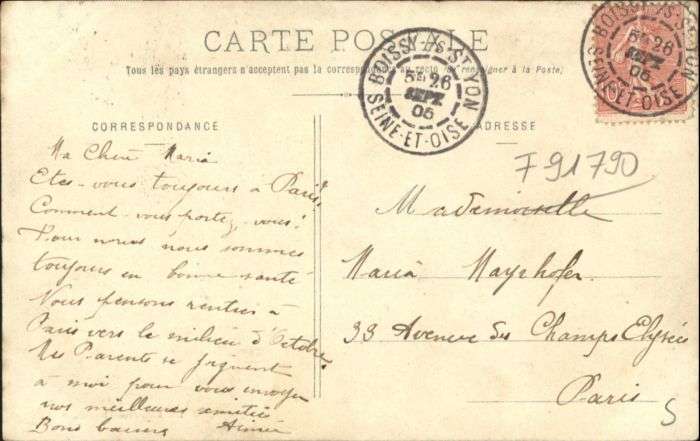 CARTE POSTALE
Tous les pays étrangers n'acceptent pas la correspondance au recto (se renseigner à la Poste)
BOISSY-S-ST-YON
5E 26
SEPT
05
SEINE-ET-OISE
BOISSY-S-ST-YON
5E 26
SEPT
05
SEINE-ET-OISE
CORRESPONDANCE
Ma Chère Maria
Etes-vous toujours à Paris?
Comment vous portez-vous?
Pour nous nous sommes
toujours en bonne santé
Nous pensons rentrer à
Paris vers le milieu d'Octobre
Mes Parents se joignent
à moi pour vous envoyer
nos meilleures amitiés
Bons baisers Aimée
ADRESSE
F 91790
Mademoiselle
Maria Mayrhofer
33 Avenue des Champs Elysées
Paris
5